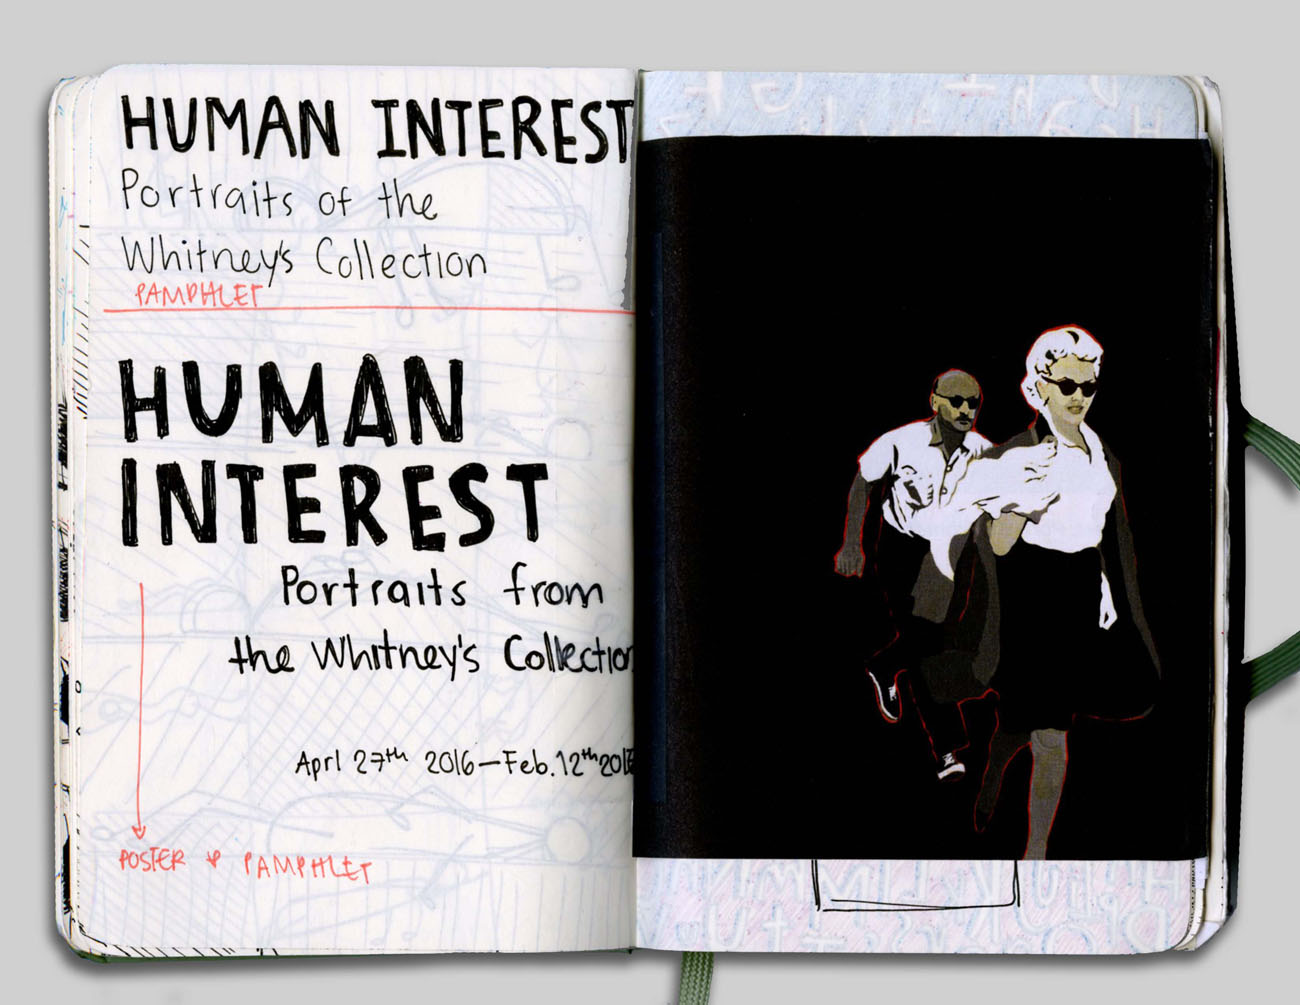 HUMAN INTEREST
Portraits of the
Whitney's Collection
PAMPHLET
HUMAN
INTEREST
Portraits from
the Whitney's Collection
Aprl 27th 2016—Feb. 12th
POSTER & PAMPHLET